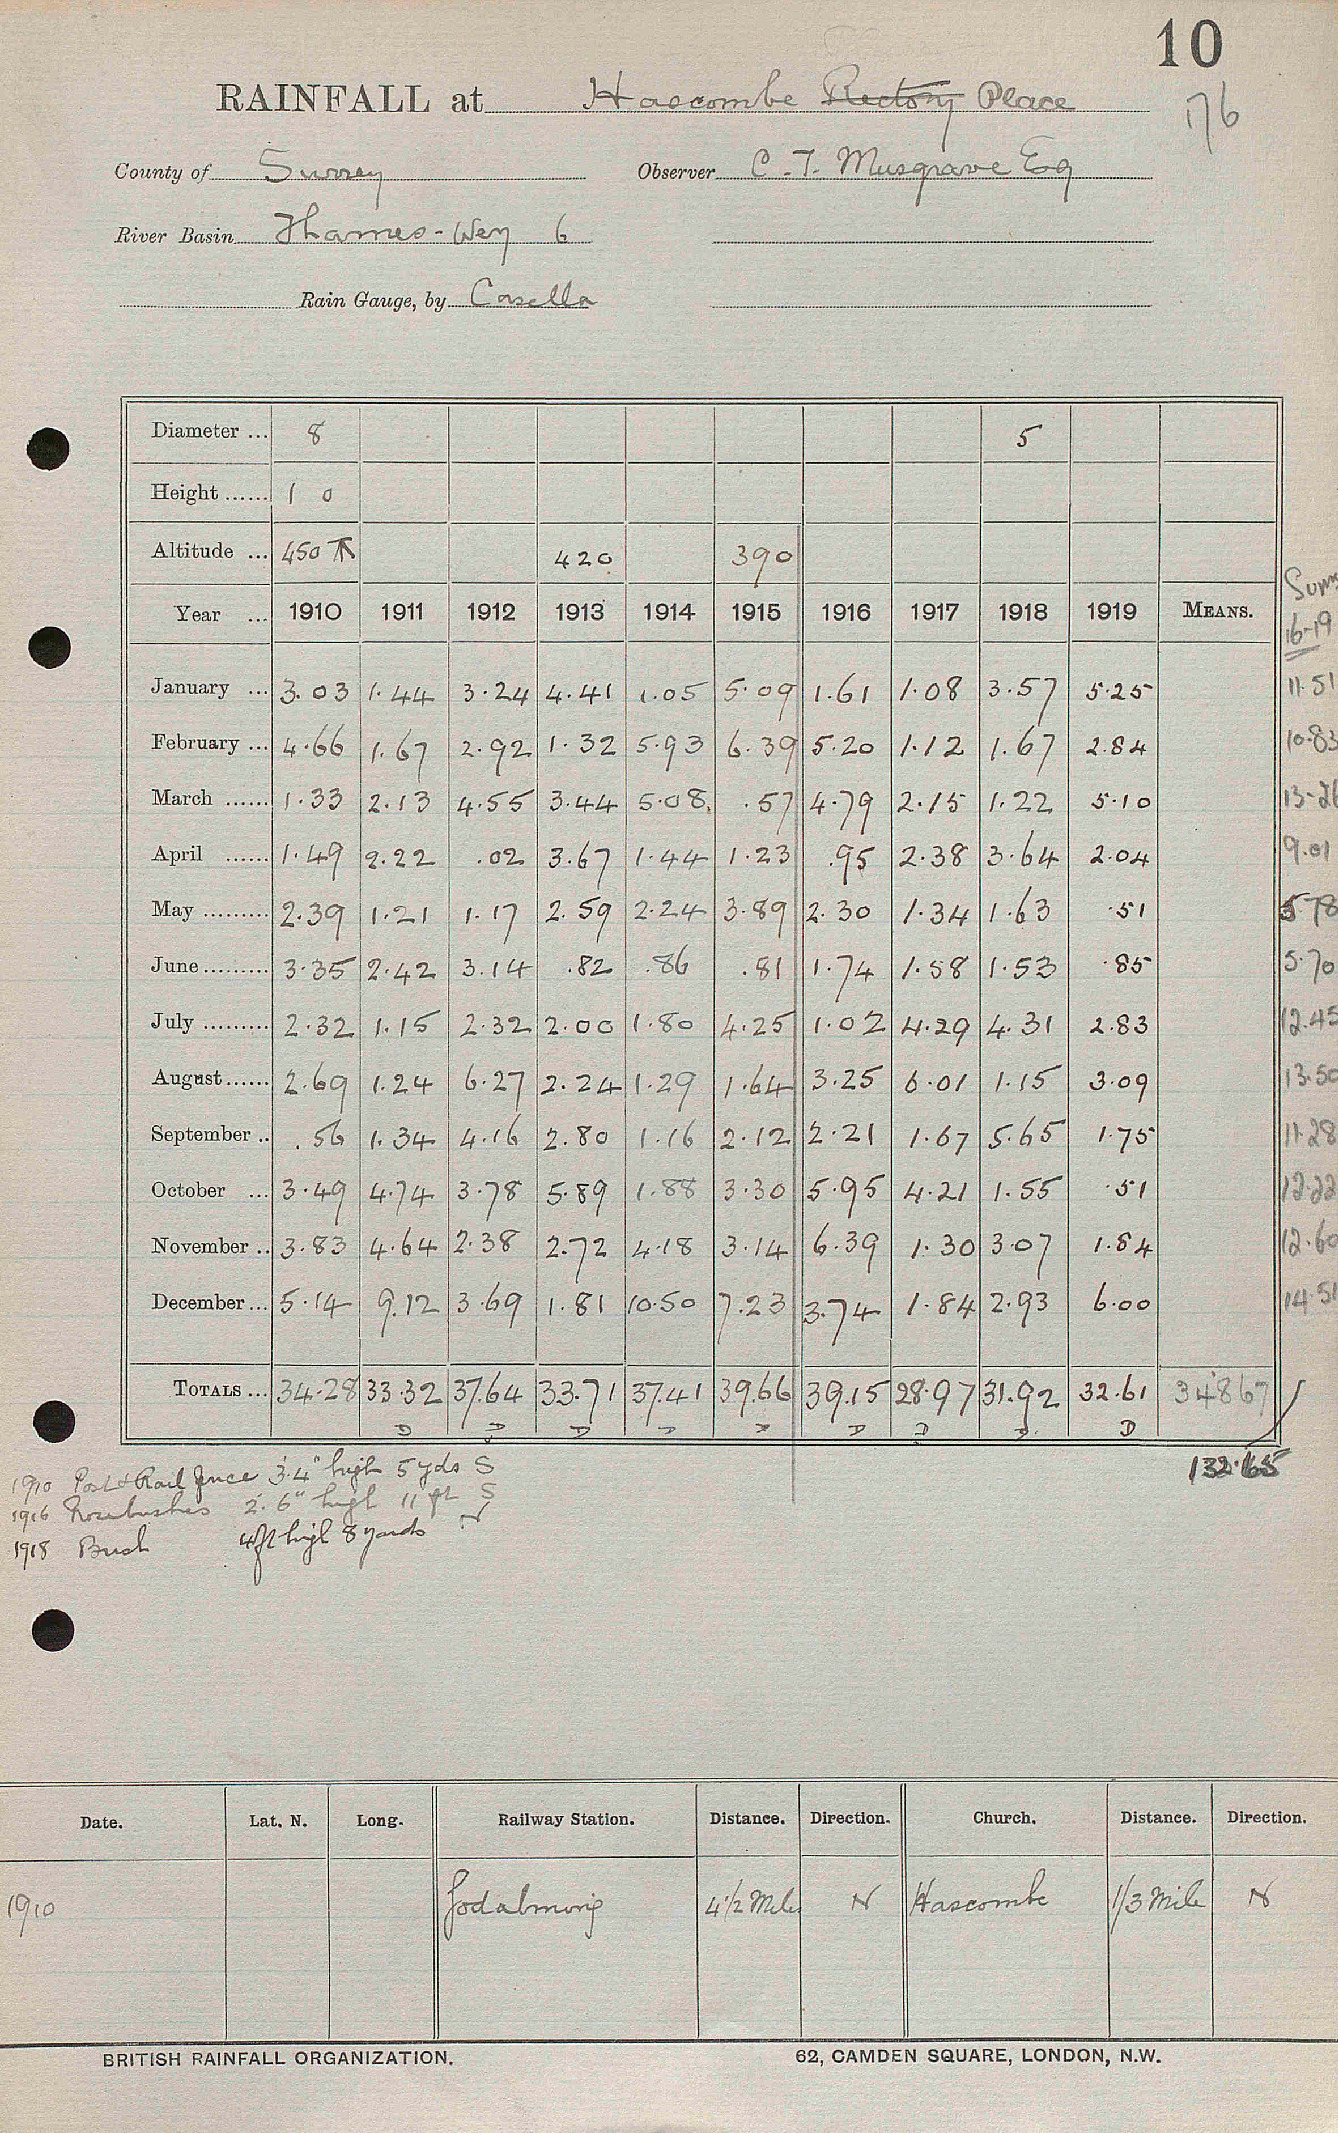 10
RAINFALL at Hascombe Rectory Place
176
County of Surrey Observer C. T. Musgrave Esq
River Basin Thames - Wey 6
Rain Gauge, by Casella
Diameter ... 8 5
Height ...... 1 0
Altitude ... 450 420 390
Year ... 1910 1911 1912 1913 1914 1915 1916 1917 1918 1919 MEANS. Sums 16-19
January ... 3.03 1.44 3.24 4.41 1.05 5.09 1.61 1.08 3.57 5.25 11.51
February ... 4.66 1.67 2.92 1.32 5.93 6.39 5.20 1.12 1.67 2.84 10.83
March ...... 1.33 2.13 4.55 3.44 5.08 .57 4.79 2.15 1.22 5.10 13.26
April ...... 1.49 2.22 .02 3.67 1.44 1.23 .95 2.38 3.64 2.04 9.01
May ......... 2.39 1.21 1.17 2.59 2.24 3.89 2.30 1.34 1.63 .51 5.78
June ......... 3.35 2.42 3.14 .82 .86 .81 1.74 1.58 1.53 .85 5.70
July ......... 2.32 1.15 2.32 2.00 1.80 4.25 1.02 4.29 4.31 2.83 12.45
August ...... 2.69 1.24 6.27 2.24 1.29 1.64 3.25 6.01 1.15 3.09 13.50
September .. .56 1.34 4.16 2.80 1.16 2.12 2.21 1.67 5.65 1.75 11.28
October ... 3.49 4.74 3.78 5.89 1.88 3.30 5.95 4.21 1.55 .51 12.22
November .. 3.83 4.64 2.38 2.72 4.18 3.14 6.39 1.30 3.07 1.84 12.60
December ... 5.14 9.12 3.69 1.81 10.50 7.23 3.74 1.84 2.93 6.00 14.51
TOTALS ... 34.28 33.32 37.64 33.71 37.41 39.66 39.15 28.97 31.92 32.61 348.67
D D D D D D D D D
132.65
1910 Post & Rail fence 3'.4" high 5 yds S
1916 Rosebushes 2'.6" high 11 ft S
1918 Bush 4ft high 8 yards N
Date. Lat. N. Long. Railway Station. Distance. Direction. Church. Distance. Direction.
1910 Godalming 4 1/2 Miles N Hascombe 1/3 Mile N
BRITISH RAINFALL ORGANIZATION. 62, CAMDEN SQUARE, LONDON, N.W.